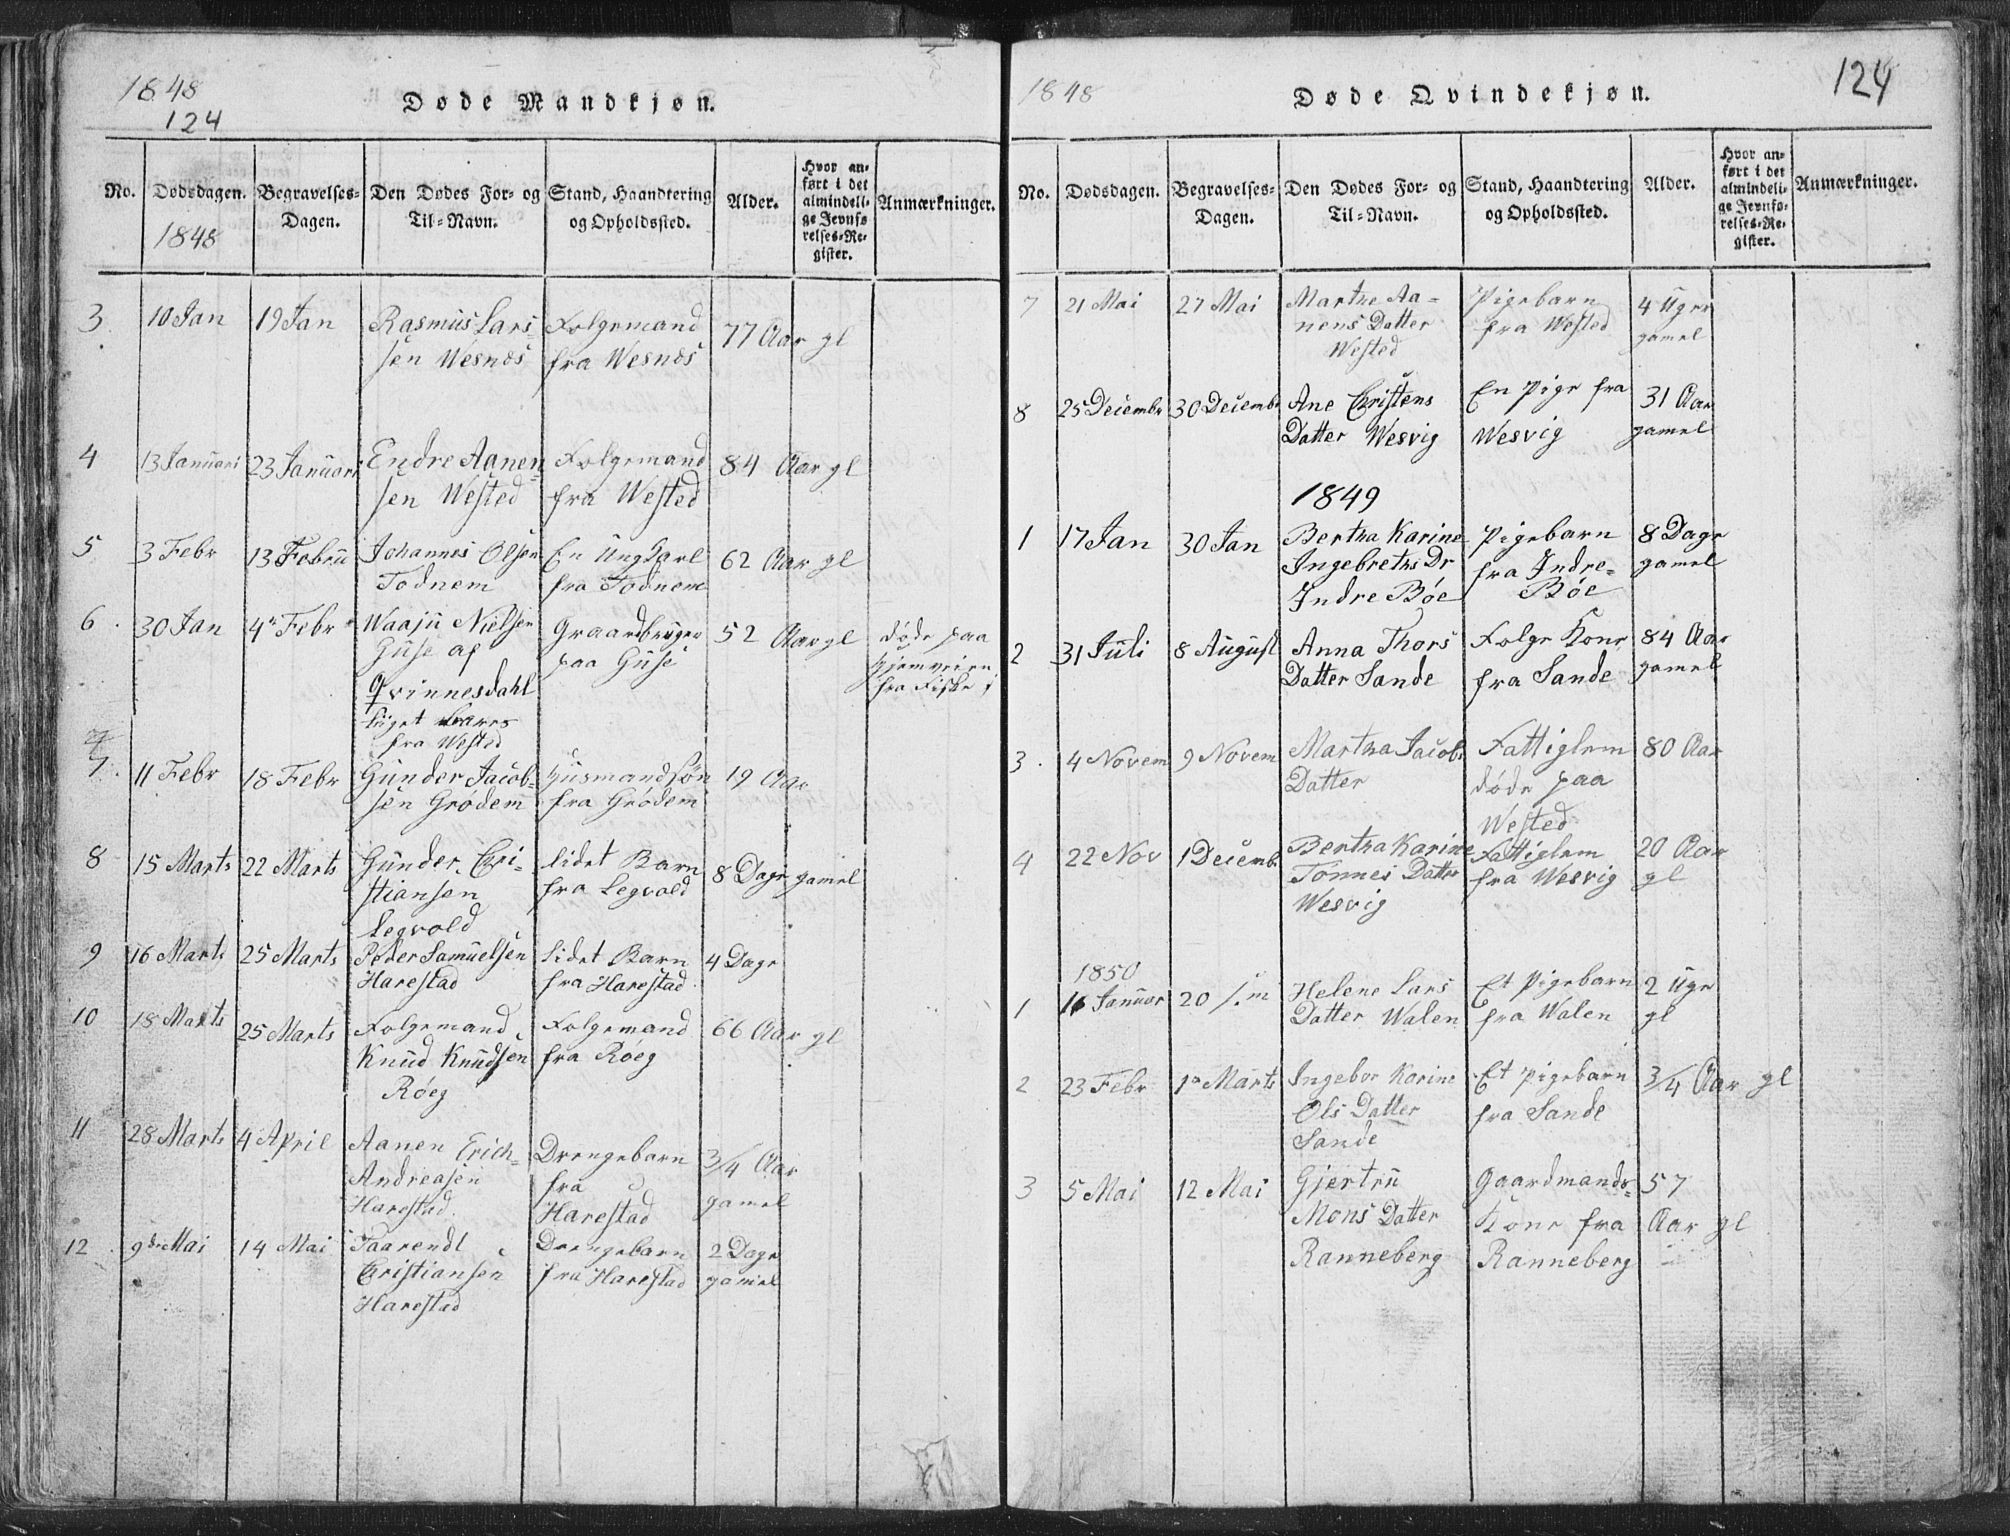 1848
124
Døde Mandkjøn.
No.
Dødsdagen.
1848
Begravelses-
Dagen.
Den Dødes For- og
Til-Navn.
Stand, Haandtering
og Opholdssted.
Alder.
Hvor an-
ført i det
almindeli-
ge Jevnfø
relses-Re-
gister.
Anmærkninger.
3. 10 Jan 19 Jan Rasmus Lars- Folgemand 77 Aar gl
sen Wesnæs fra Wesnæs
4 13 Januari 23 Januari Endre Aanen Folgemand 84 Aar gl
sen Wested fra Wested
5 3 Febr 13 Febru Johannes Olsen En Ungkarl 62 Aar gl
Todnem fra Todnem
6. 30 Jan 4n Febr Waaju Nielsen Graardbruger 52 Aar gl døde paa
Guse af paa Guse hjemveien
Qvinnesdahl fra Fiske
liiget bares
fra Wested
7. 11 Febr 18 Febr Gunder Jacob- Husmandsøn 19 Aar
sen Grødem fra Grødem
8 15 Marts 22 Marts Gunder Cri- lidet Barn 8 Dage gamel
stiansen fra Legvold
Legvold
9 16 Marts 25 Marts Peder Samuelsen lidet Barn 4 Dage
Harestad fra Harestad
10 18 Marts 25 Marts Folgemand Folgemand 66 Aar gl
Knud Knudsen fra Røeg
Røeg
11 28 Marts 4 April Aanen Erich- Drengebarn 3/4 Aar
Andreasen fra gamel
Harestad. Harestad
12. 9de Mai 14 Mai Taarendl Drengebarn 2 Dage
Cristiansen fra Harestad gamel
Harestad
1848
Døde Qvindekjøn.
124
No.
Dødsdagen.
Begravelses-
Dagen.
Den Dødes For- og
Til-Navn.
Stand, Haandtering
og Opholdssted.
Alder.
Hvor an-
ført i det
almindeli-
ge Jevnfø-
relses-Re-
gister.
Anmærkninger.
7 21 Mai 27 Mai Marthe Aa- Pigebarn 4 Uger
nens Datter fra Wested gamel
Wested
8 25 Decembr 30 Decemb Ane Christens En Pige fra 31 Aar
Datter Wesvig Wesvig gamel
1849
1 17 Jan 30 Jan Bertha Karine Pigebarn 8 Dage
Ingebreths Dr fra Indre- gamel
Indre Bøe Bøe
2 31 Juli 8 August Anna Thors Folge Kone 84 Aar
Datter Sande fra Sande gamel
3. 4 Novem 9 Novem Martha Jacobs Fattiglem 80 Aar
Datter døde paa
Wested
4 22 Nov 1 Decemb Bertha Karine Fattiglem 20 Aar
Tonnes Datter fra Wesvig gl
Wesvig
1850
1 16 Januar 20 /.m Helene Lars Et Pigebarn 2 Uge
Datter Walen fra Walen gl
2 23 Febr 1n Marts Ingebor Karine Et Pigebarn 3/4 Aar gl
Ols Datter fra Sande
Sande
3 5 Mai 12 Mai Gjertru Gaardmands- 57
Mons Datter Kone fra Aar gl
Ranneberg Ranneberg